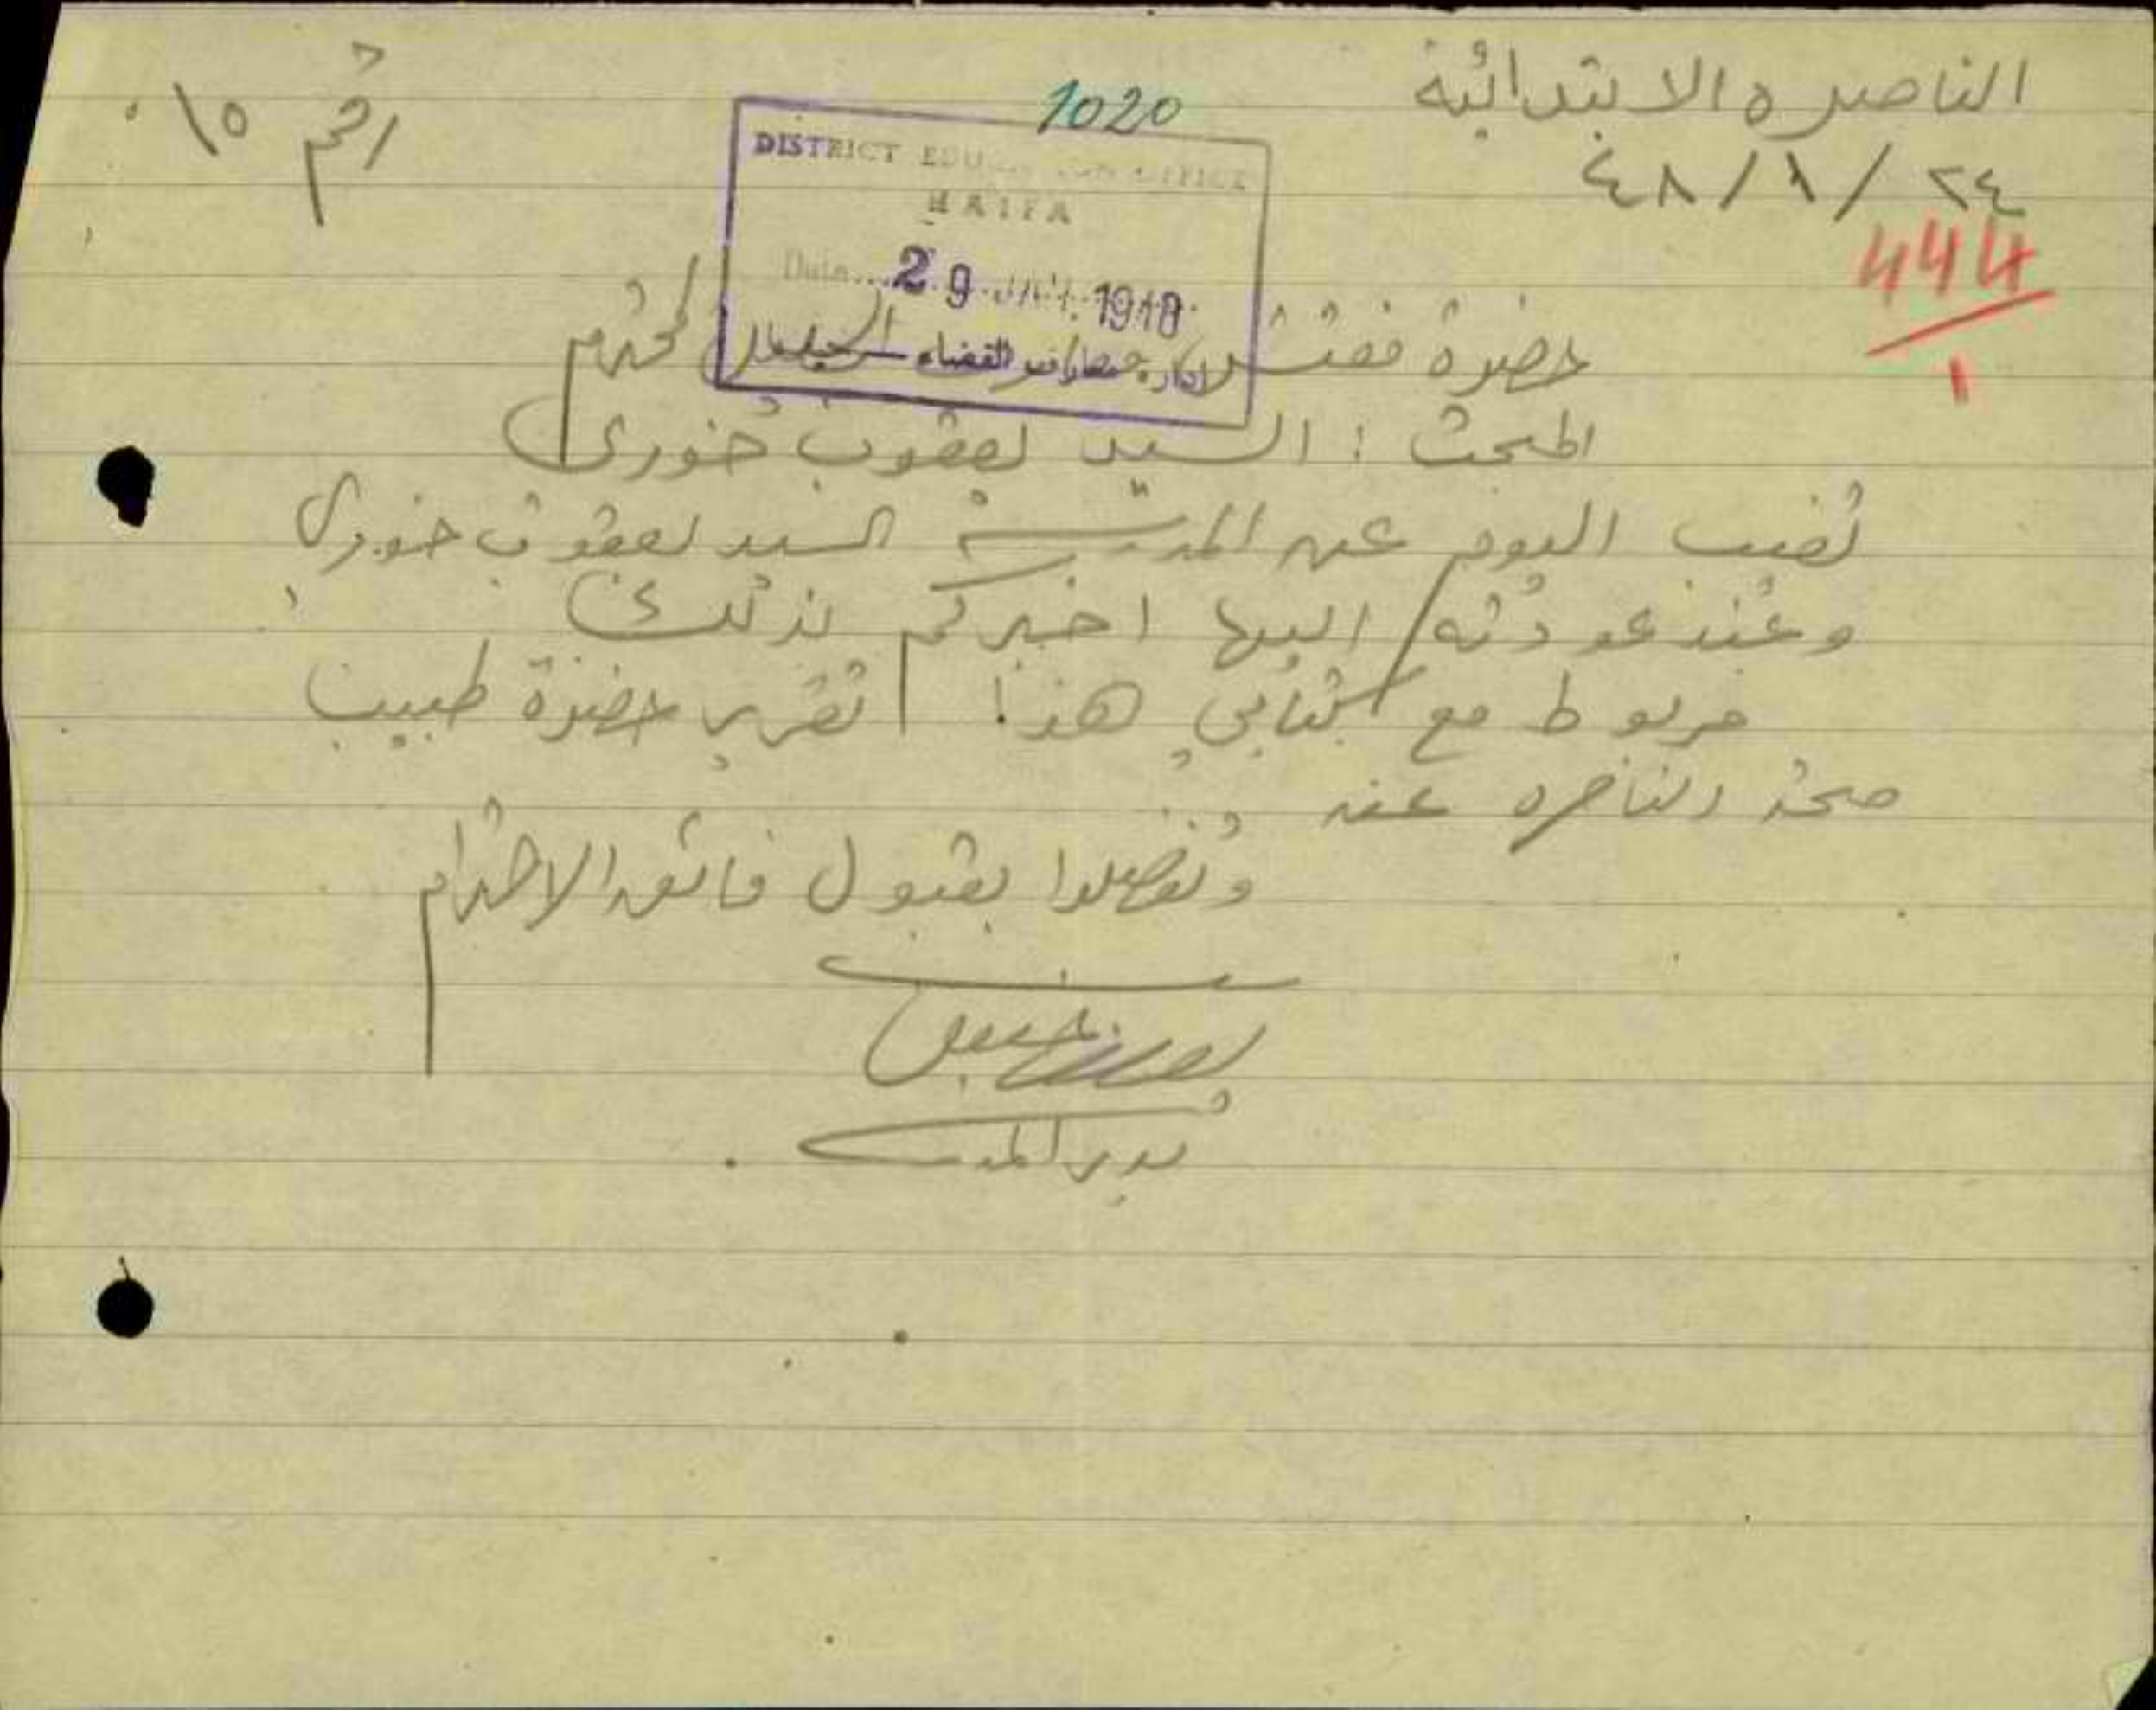 الناصره الابتدائية
رقم ١٥
٢٤/١/٤٨
1020
444
١
DISTRICT EDUCATION OFFICE
HAIFA
Date... 29 JAN. 1948
حضرة مفتش المحترم
المبحث : السيد يعقوب خوري
تغيب اليوم عن المدرسة السيد يعقوب خوري
وعند عودته اليها اخبركم بذلك
مربوط مع كتابي هذا تقرير حضرة طبيب
صحة الناصره عنه
وتفضلوا بقبول فائق الاحترام
مدير المدرسة